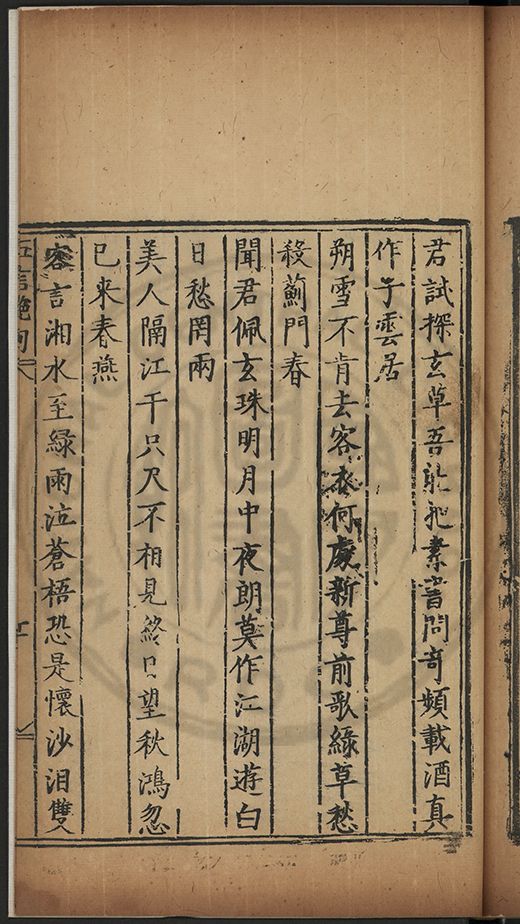 君試探玄草吾素書問奇頻載酒真
作子雲居
朔雪不肯去客衣何處新尊前歌綠草愁
殺薊門春
聞君佩玄珠明月中夜朗莫作江湖遊白
日愁罔兩
美人隔江干只尺不相見終日望秋鴻忽
已来春燕
客言湘水至綠雨泣蒼梧恐是懷沙泪雙
五言絶句